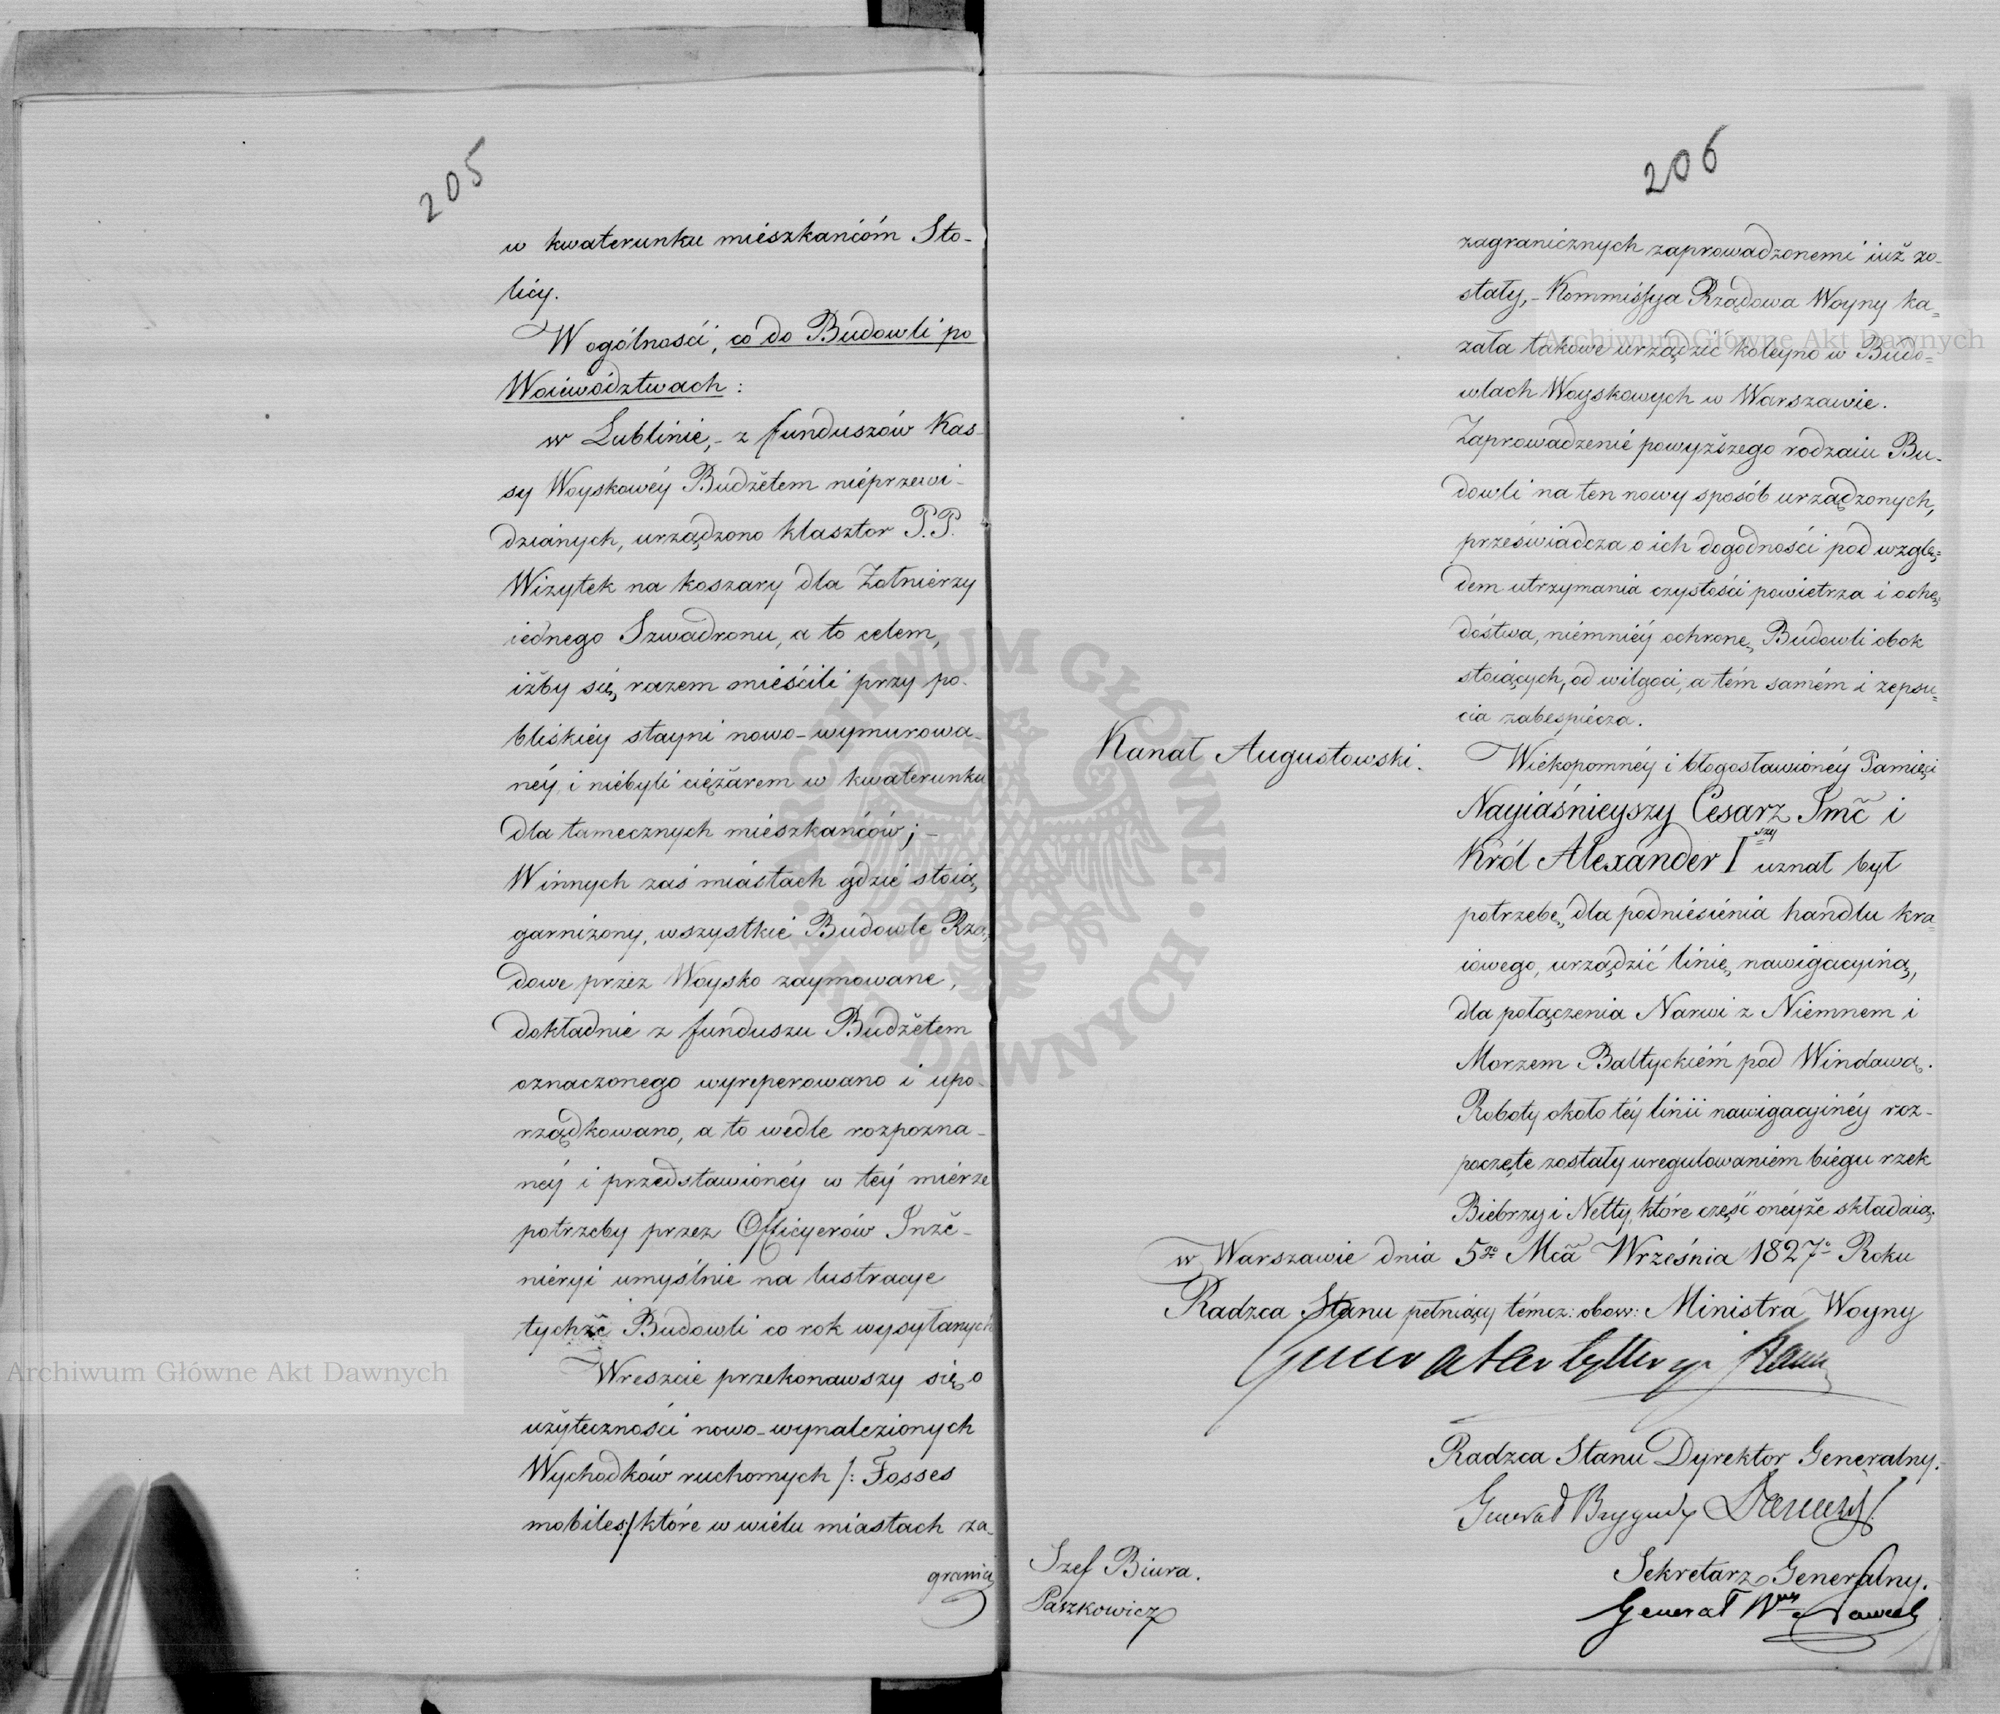 205
w kwaterunku miészkańcóm Sto-
licy.
W ogólności, co do Budowli po
Woiewództwach:
w Lublinie,- z funduszów Kas-
sy Woyskowéy Budżetem nieprzewi-
dzianych, urządzono klasztor P.P.
Wizytek na koszary dla Żołnierzy
iednego Szwadronu, a to celem,
iżby się razem mieścili przy po-
bliskiéy stayni nowo-wymurowa-
néy i niebyli ciężarem w kwaterunku
dla tamecznych miészkańców;-
W innych zaś miastach gdzie stoią
garnizony, wszystkie Budowle Rzą-
dowe przez Woysko zaymowane,
dokładnie z funduszu Budżetem
oznaczonego wyreperowano i upo-
rządkowano, a to wedle rozpozna-
néy i przedstawionéy w téy miérze
potrzeby przez Officyerów Inże-
nieryi umyślnie na lustracye
tychże Budowli co rok wysyłanych
Wreszcie przekonawszy się o
użyteczności nowo-wynalezionych
Wychodków ruchomych /: Fosses
mobiles:/ które w wielu miastach za-
granicz
206
zagranicznych zaprowadzonemi iuż zo-
stały,- Kommissya Rządowa Woyny ka=
zała takowe urządzić koleyno w Budo=
wlach Woyskowych w Warszawie.
Zaprowadzenie powyższego rodzaiu Bu-
dowli na ten nowy sposób urządzonych,
przeświadcza o ich dogodności pod wzglę=
dem utrzymania czystości powietrza i ochę=
dóstwa, niémniéy ochronę Budowli obok
stoiących, od wilgoci, a tém samém i zepsu=
cia zabespiécza.
Kanał Augustowski.
Wiekopomnéy i błogosławionéy Pamięci
Nayiaśnieyszy Cesarz Jmć i
Król Alexander I szy uznał był
potrzebę, dla podniésienia handlu kra=
iowego, urządzić linię nawigacyiną,
dla połączenia Narwi z Niemnem i
Morzem Baltyckiém pod Windawą.
Roboty około téy linii nawigacyinéy roz-
poczęte zostały uregulowaniem biegu rzek
Biebrzy i Netty, które część onéyże składaią.
w Warszawie dnia 5go Mca Września 1827o Roku
Radzca Stanu pełniący témcz: obow: Ministra Woyny
Generał Artylleryi
Radzca Stanu Dyrektor Generalny.
Generał Brygady
Szef Biura.
Paszkowicz
Sekretarz Generalny.
Generał
Archiwum Główne Akt Dawnych
Archiwum Główne Akt Dawnych
ARCHIWUM GŁÓWNE
AKT DAWNYCH